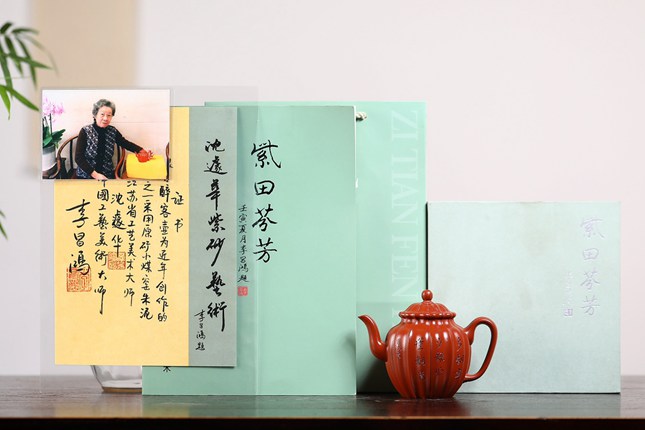 证书
醉客壶为近年创作的
之一采用原矿小煤窑朱泥
江苏省工艺美术大师
沈遽华
中国工艺美术大师
李昌鸿
沈遽华紫砂艺術
李昌鸿题
紫田芬芳
壬寅夏月李昌鸿题
ZI TIAN FEN
紫田芬芳